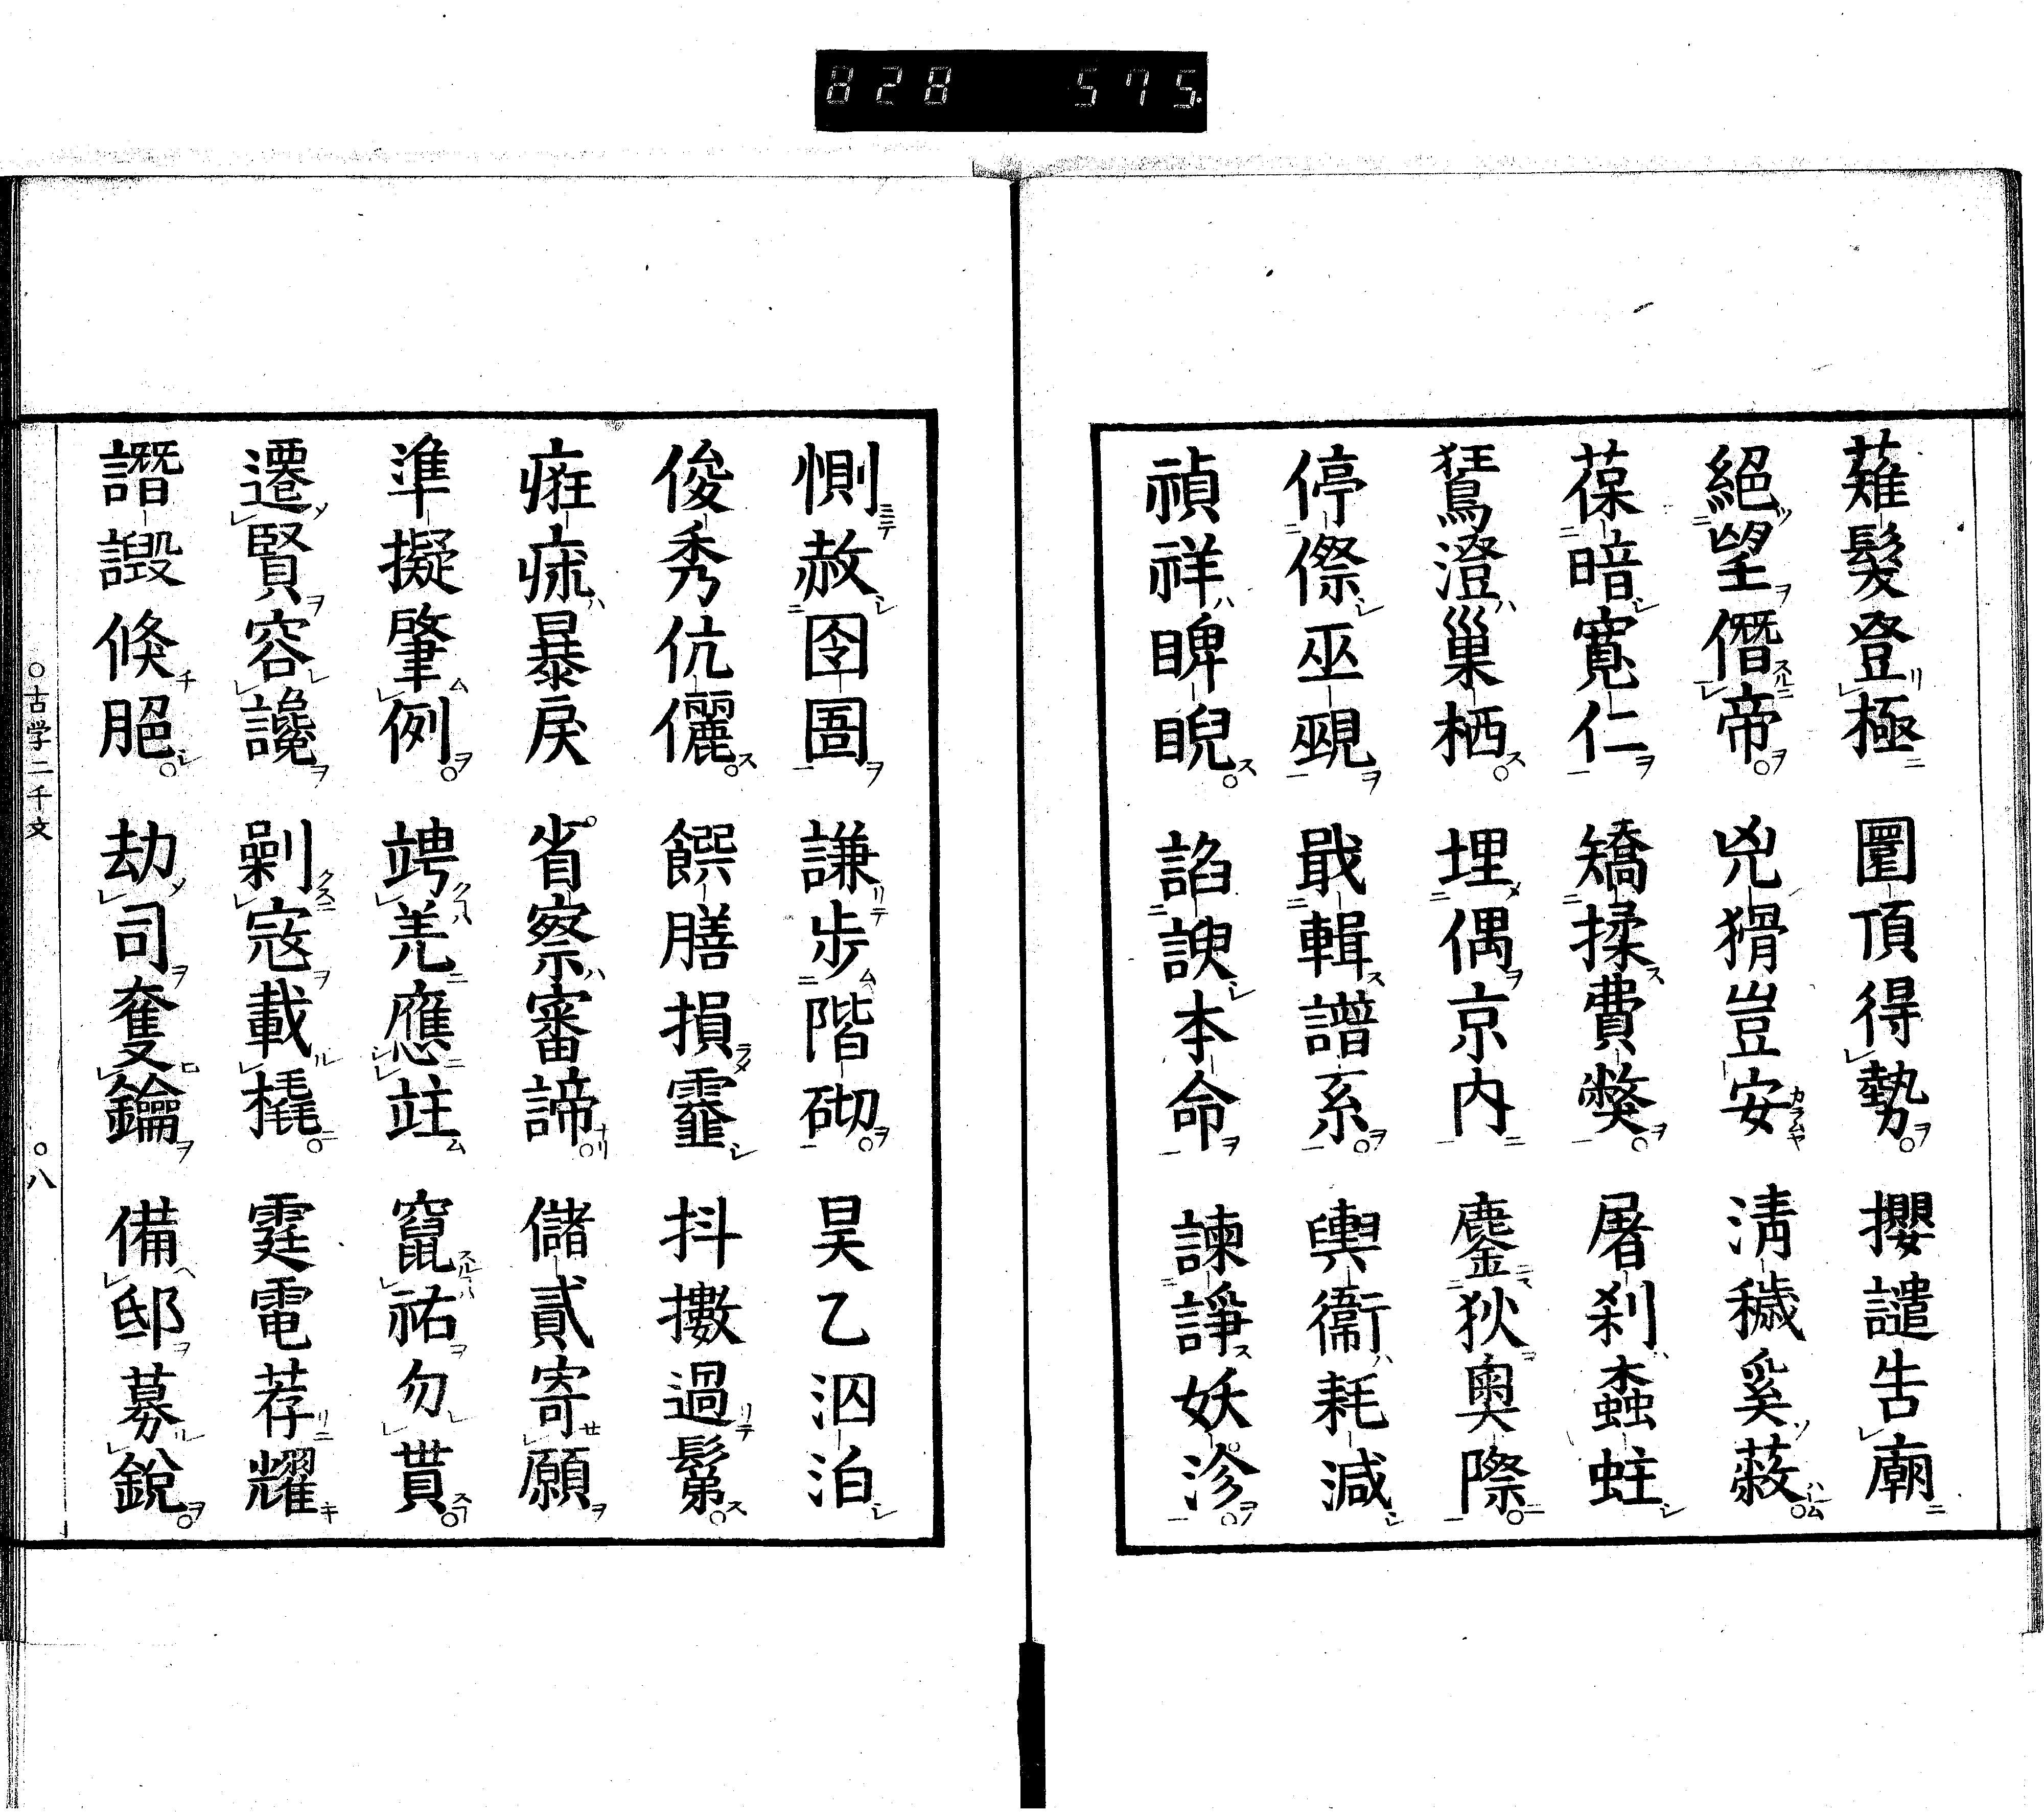 828 575
薙髮登極 圍頂得勢 攖譴告廟
絕望僭帝 兇猾豈安 淸穢奚蔱
葆暗寬仁 矯揉費獘 屠刹蟊蛀
鵟澄巢栖 埋偶京内 鏖狄奧際
停傺巫覡 戢輯譜系 輿衞耗減
禎祥睥睨 諂諛本命 諫諍妖沴
惻赦囹圄 謙步階砌 昊乙泅泊
俊秀伉儷 饌膳損霏 抖擻過鬀
疵痲暴戾 省察審諦 儲貳寄願
準擬肇例 竮羌應竚 竄祐勿貰
遷賢容讒 剿寇載橇 霆電荐耀
譖譭倏脃 劫司奪鑰 備邸募銳
○古学二千文 ○八